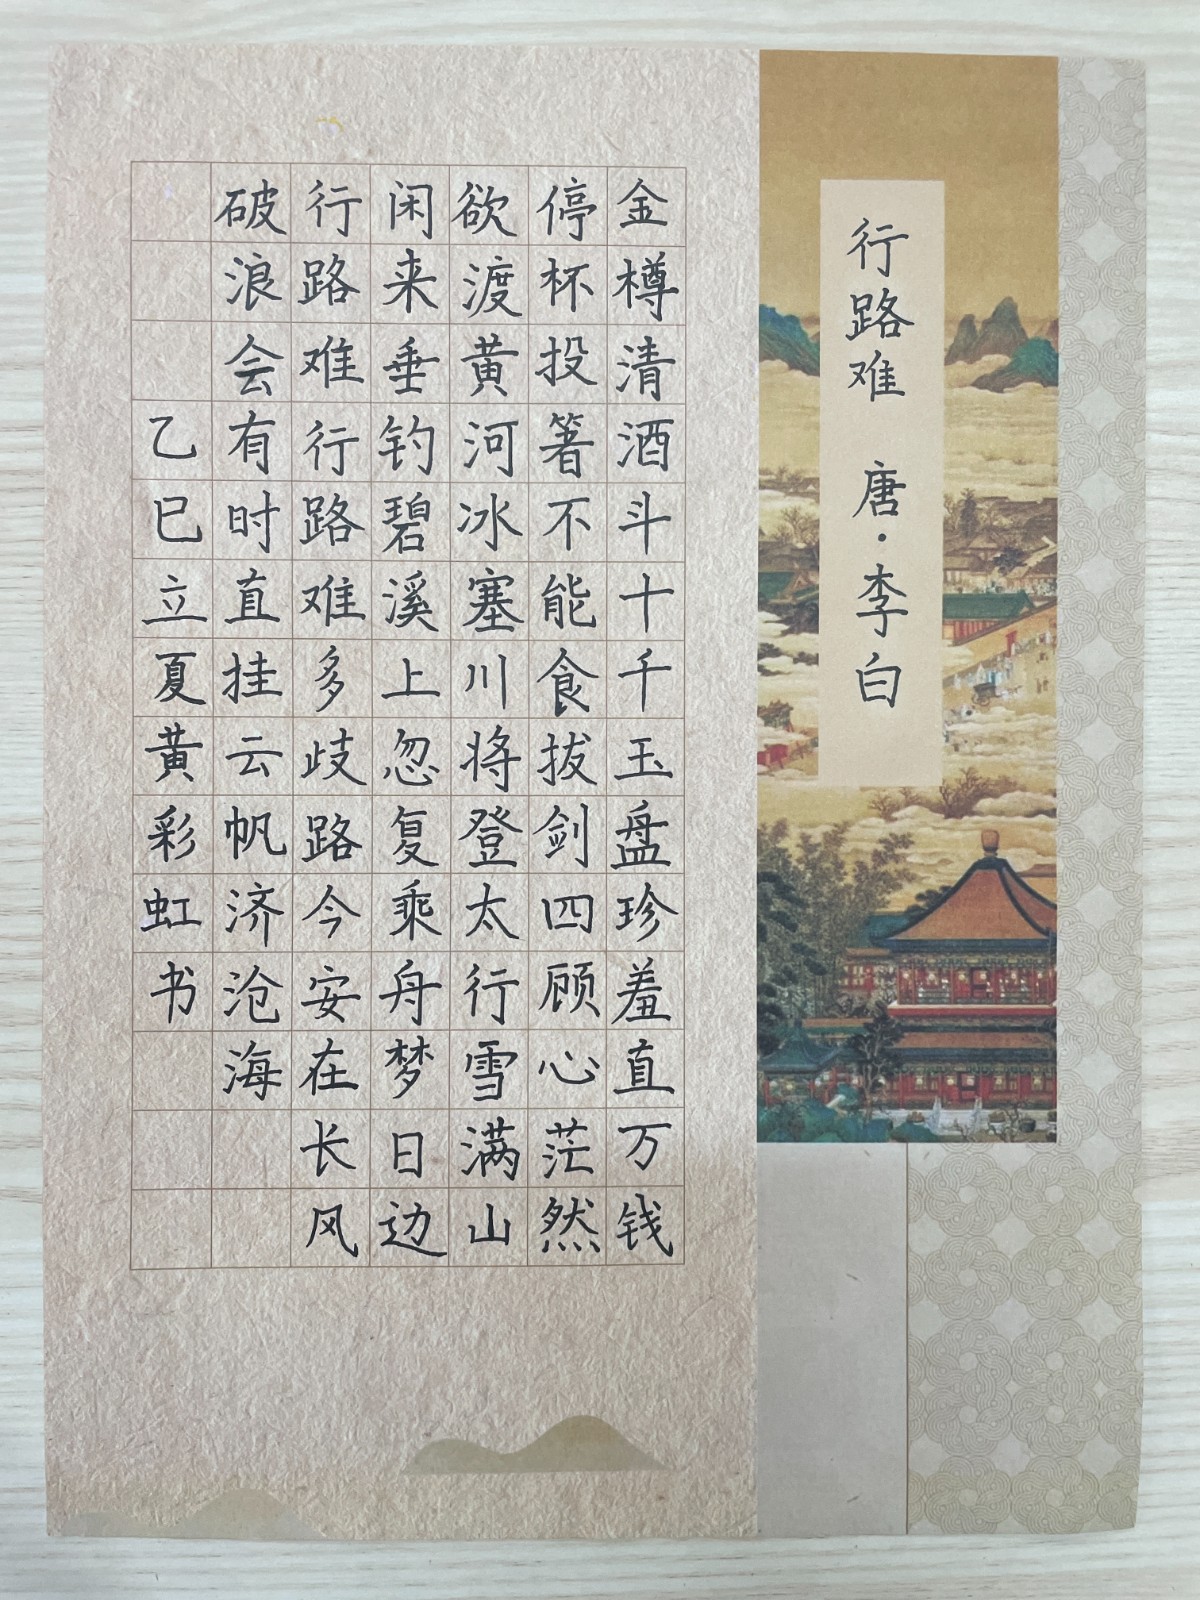 行路难 唐·李白
金樽清酒斗十千玉盘珍羞直万钱
停杯投箸不能食拔剑四顾心茫然
欲渡黄河冰塞川将登太行雪满山
闲来垂钓碧溪上忽复乘舟梦日边
行路难行路难多歧路今安在长风
破浪会有时直挂云帆济沧海
乙巳立夏黄彩虹书